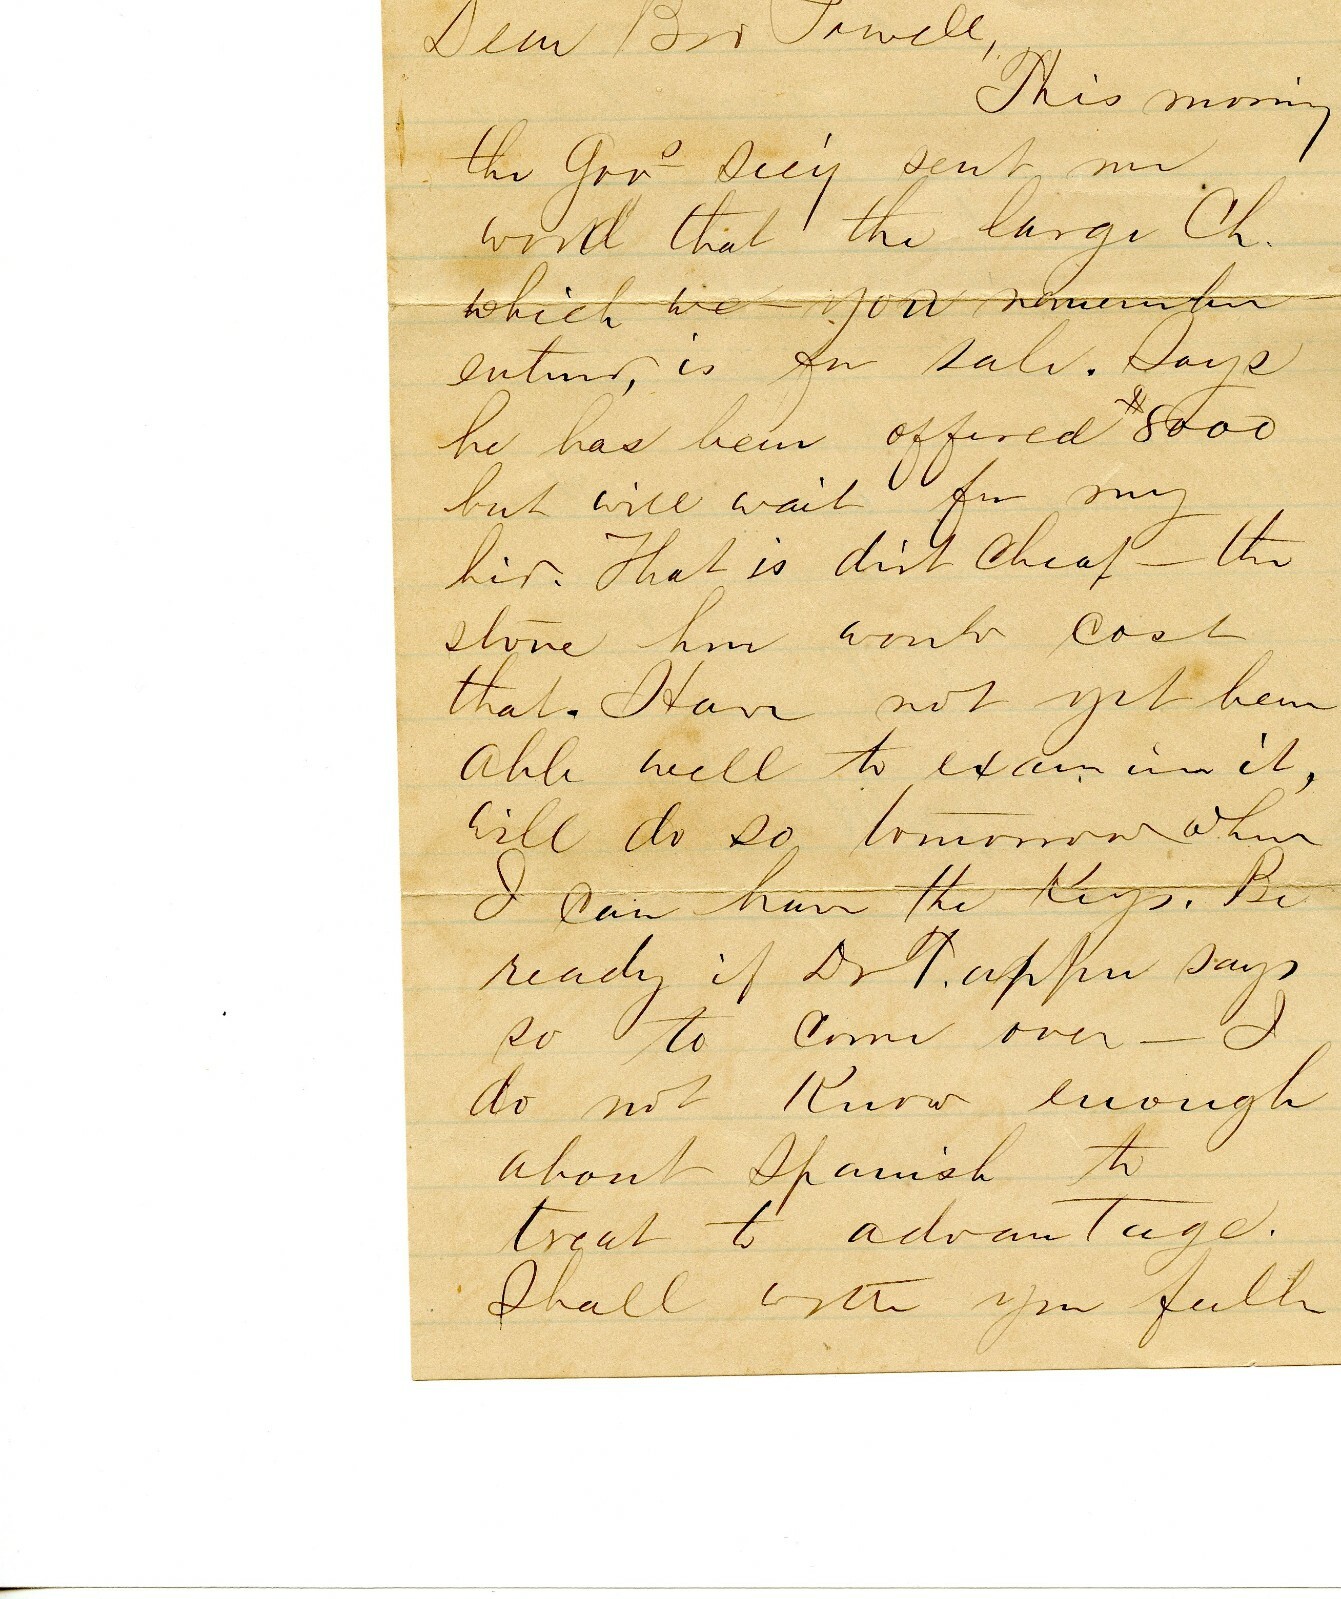 Dear Bro Powell,
This morning
the Gov's sec'y sent me
word that the large Ch.
which we you remember
entered, is for sale. Says
he has been offered $8000
but will wait for my
bid. That is dirt cheap — the
stone here would cost
that. Have not yet been
able well to examine it,
will do so tomorrow when
I can have the Keys. Be
ready if Dr T. says
so to come over — I
do not Know enough
about Spanish to
treat to advantage.
Shall write you fully